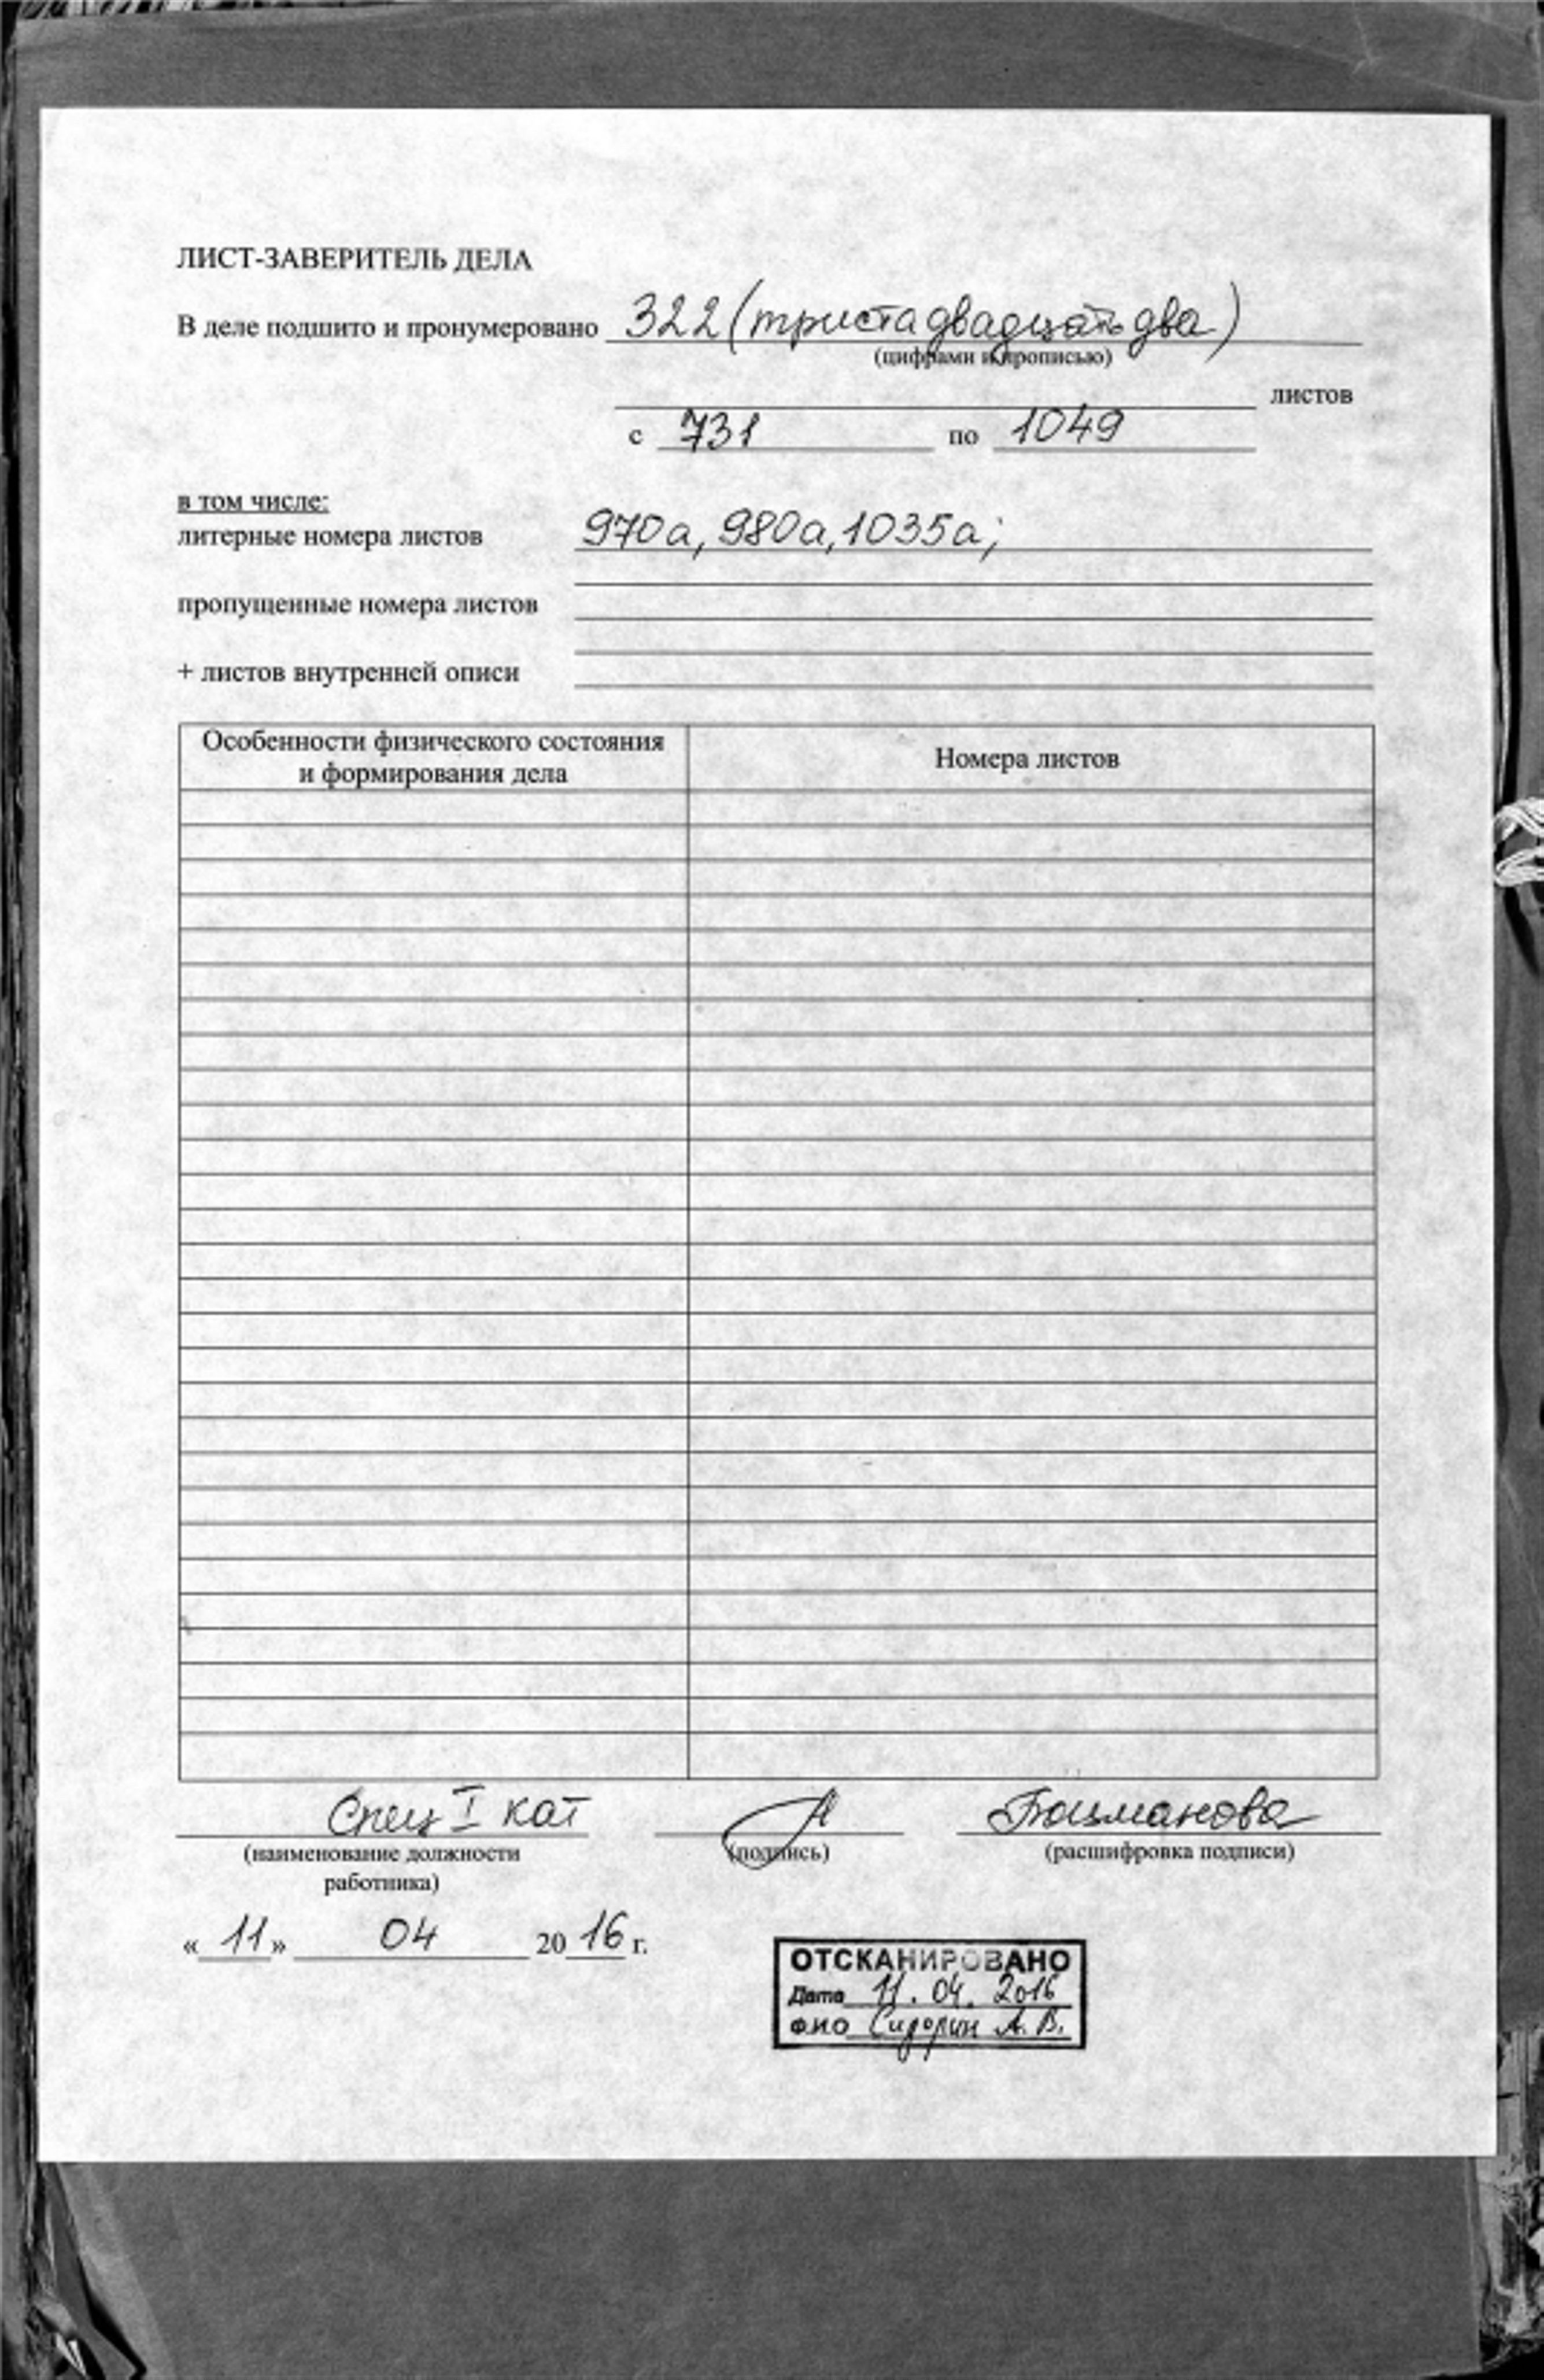 ЛИСТ-ЗАВЕРИТЕЛЬ ДЕЛА
В деле подшито и пронумеровано 322 (триста двадцать два)
(цифрами и прописью)
листов
с 731 по 1049
в том числе:
литерные номера листов 970а, 980а, 1035а;
пропущенные номера листов
+ листов внутренней описи
Особенности физического состояния
и формирования дела
Номера листов
Спец I кат
Боцманова
(наименование должности
работника)
(подпись)
(расшифровка подписи)
« 11 » 04 2016 г.
ОТСКАНИРОВАНО
Дата 11. 04. 2016
ФИО Сидорин А. В.